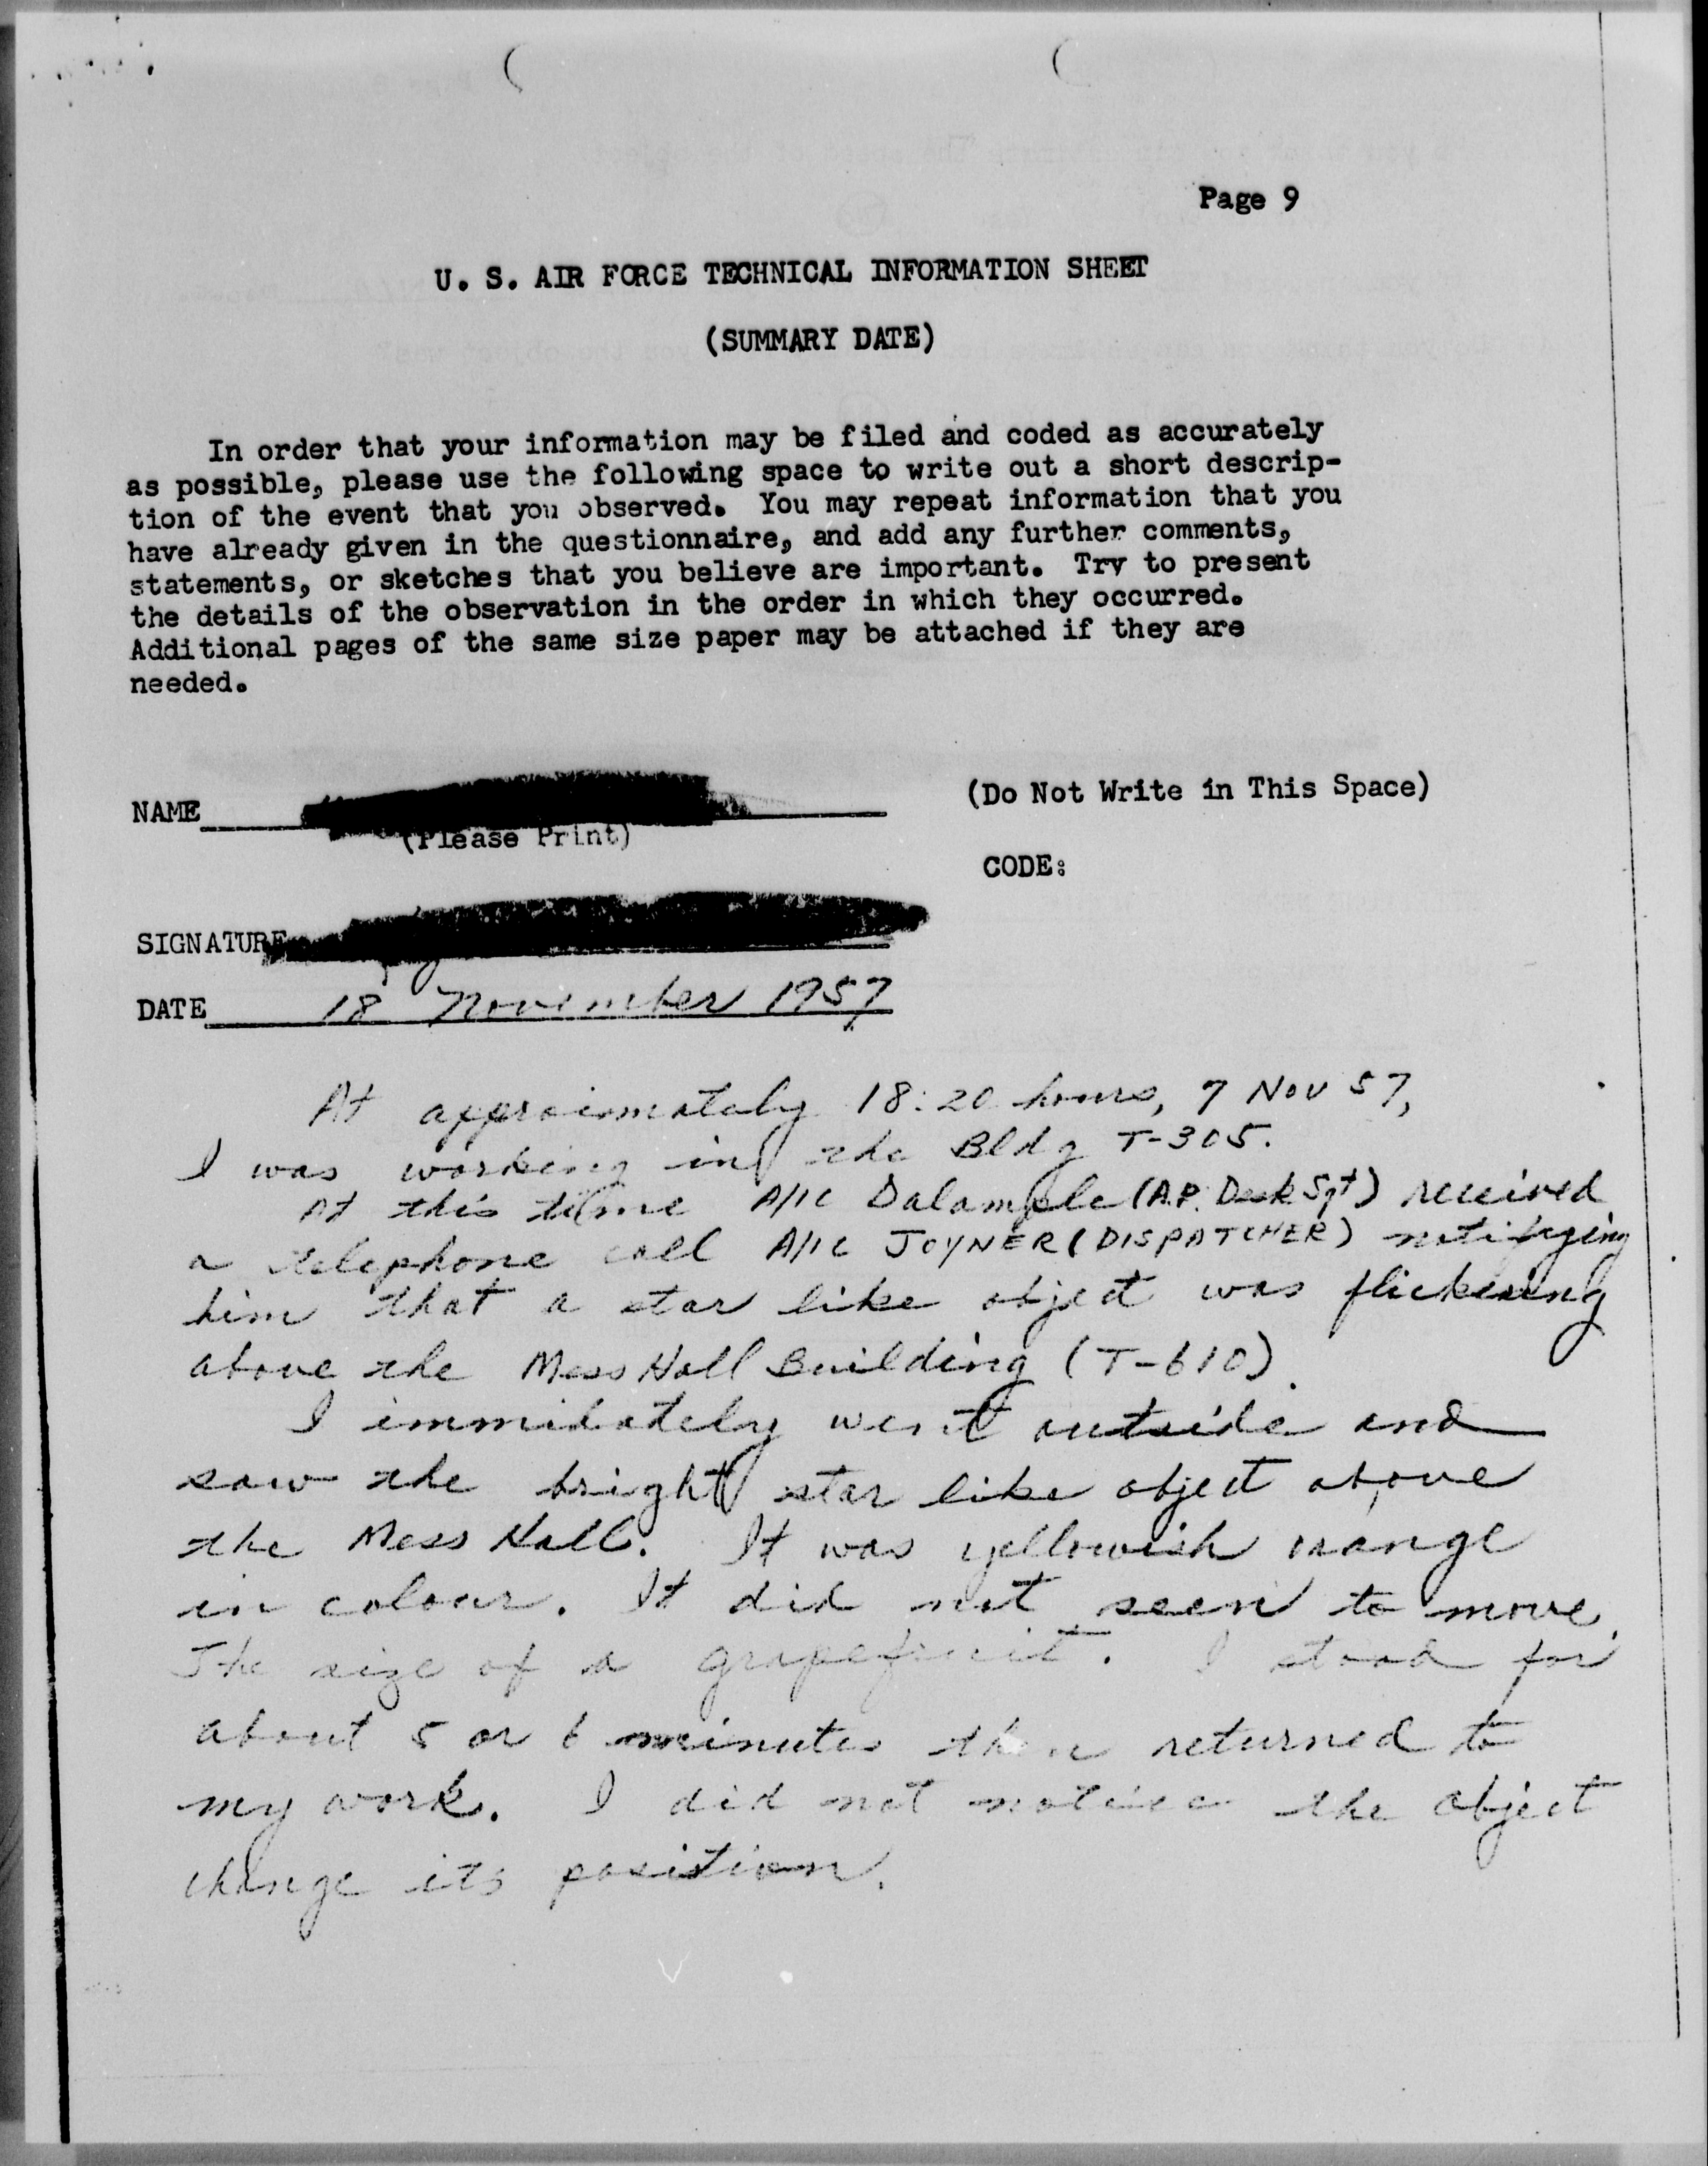 Page 9
U. S. AIR FORCE TECHNICAL INFORMATION SHEET
(SUMMARY DATE)
In order that your information may be filed and coded as accurately
as possible, please use the following space to write out a short descrip-
tion of the event that you observed. You may repeat information that you
have already given in the questionnaire, and add any further comments,
statements, or sketches that you believe are important. Try to present
the details of the observation in the order in which they occurred.
Additional pages of the same size paper may be attached if they are
needed.
NAME
(Please Print)
(Do Not Write in This Space)
CODE:
SIGNATURE
DATE 18 November 1957
At approimataly 18:20 hours, 7 Nov 57,
I was working in the Bldg T-305.
At this time A/1C (A.P. Desk Sgt) received
a telephone call A/1C JOYNER (DISPATCHER) notifying
him that a star like object was flickering
above the Mess Hall Building (T-610).
I immidately went outside and
saw the bright star like object above
the Mess Hall. It was yellowish orange
in colour. It did not seem to move.
The size of a grapefruit. I stood for
about 5 or 6 minutes then returned to
my work. I did not notice the object
change its position.